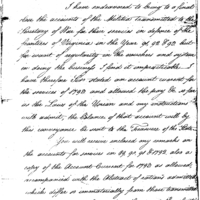 I have endeavored to bring to a final
close the accounts of the Militia transmitted to the
Secretary of War for their services in defence of the
frontiers of Virginia in the Years 91 & 92 but
for want of regularity in the musters and system
in doing the business I find it impracticable. I
have therefore Sir stated an account current for
the service of 1790 and allowed the pay &c as far
as the Laws of the Union and my instructions
will admit, the Balance of that account will by
this conveyance be sent to the Treasurer of the State.
You will receive enclosed my remarks
on the accounts for service in 89, 91 & 1792, also a
copy of the Account Current for 1790 as allowed,
accompanied with the Abstract of rations admitted
which differ so immaterially from those transmitted